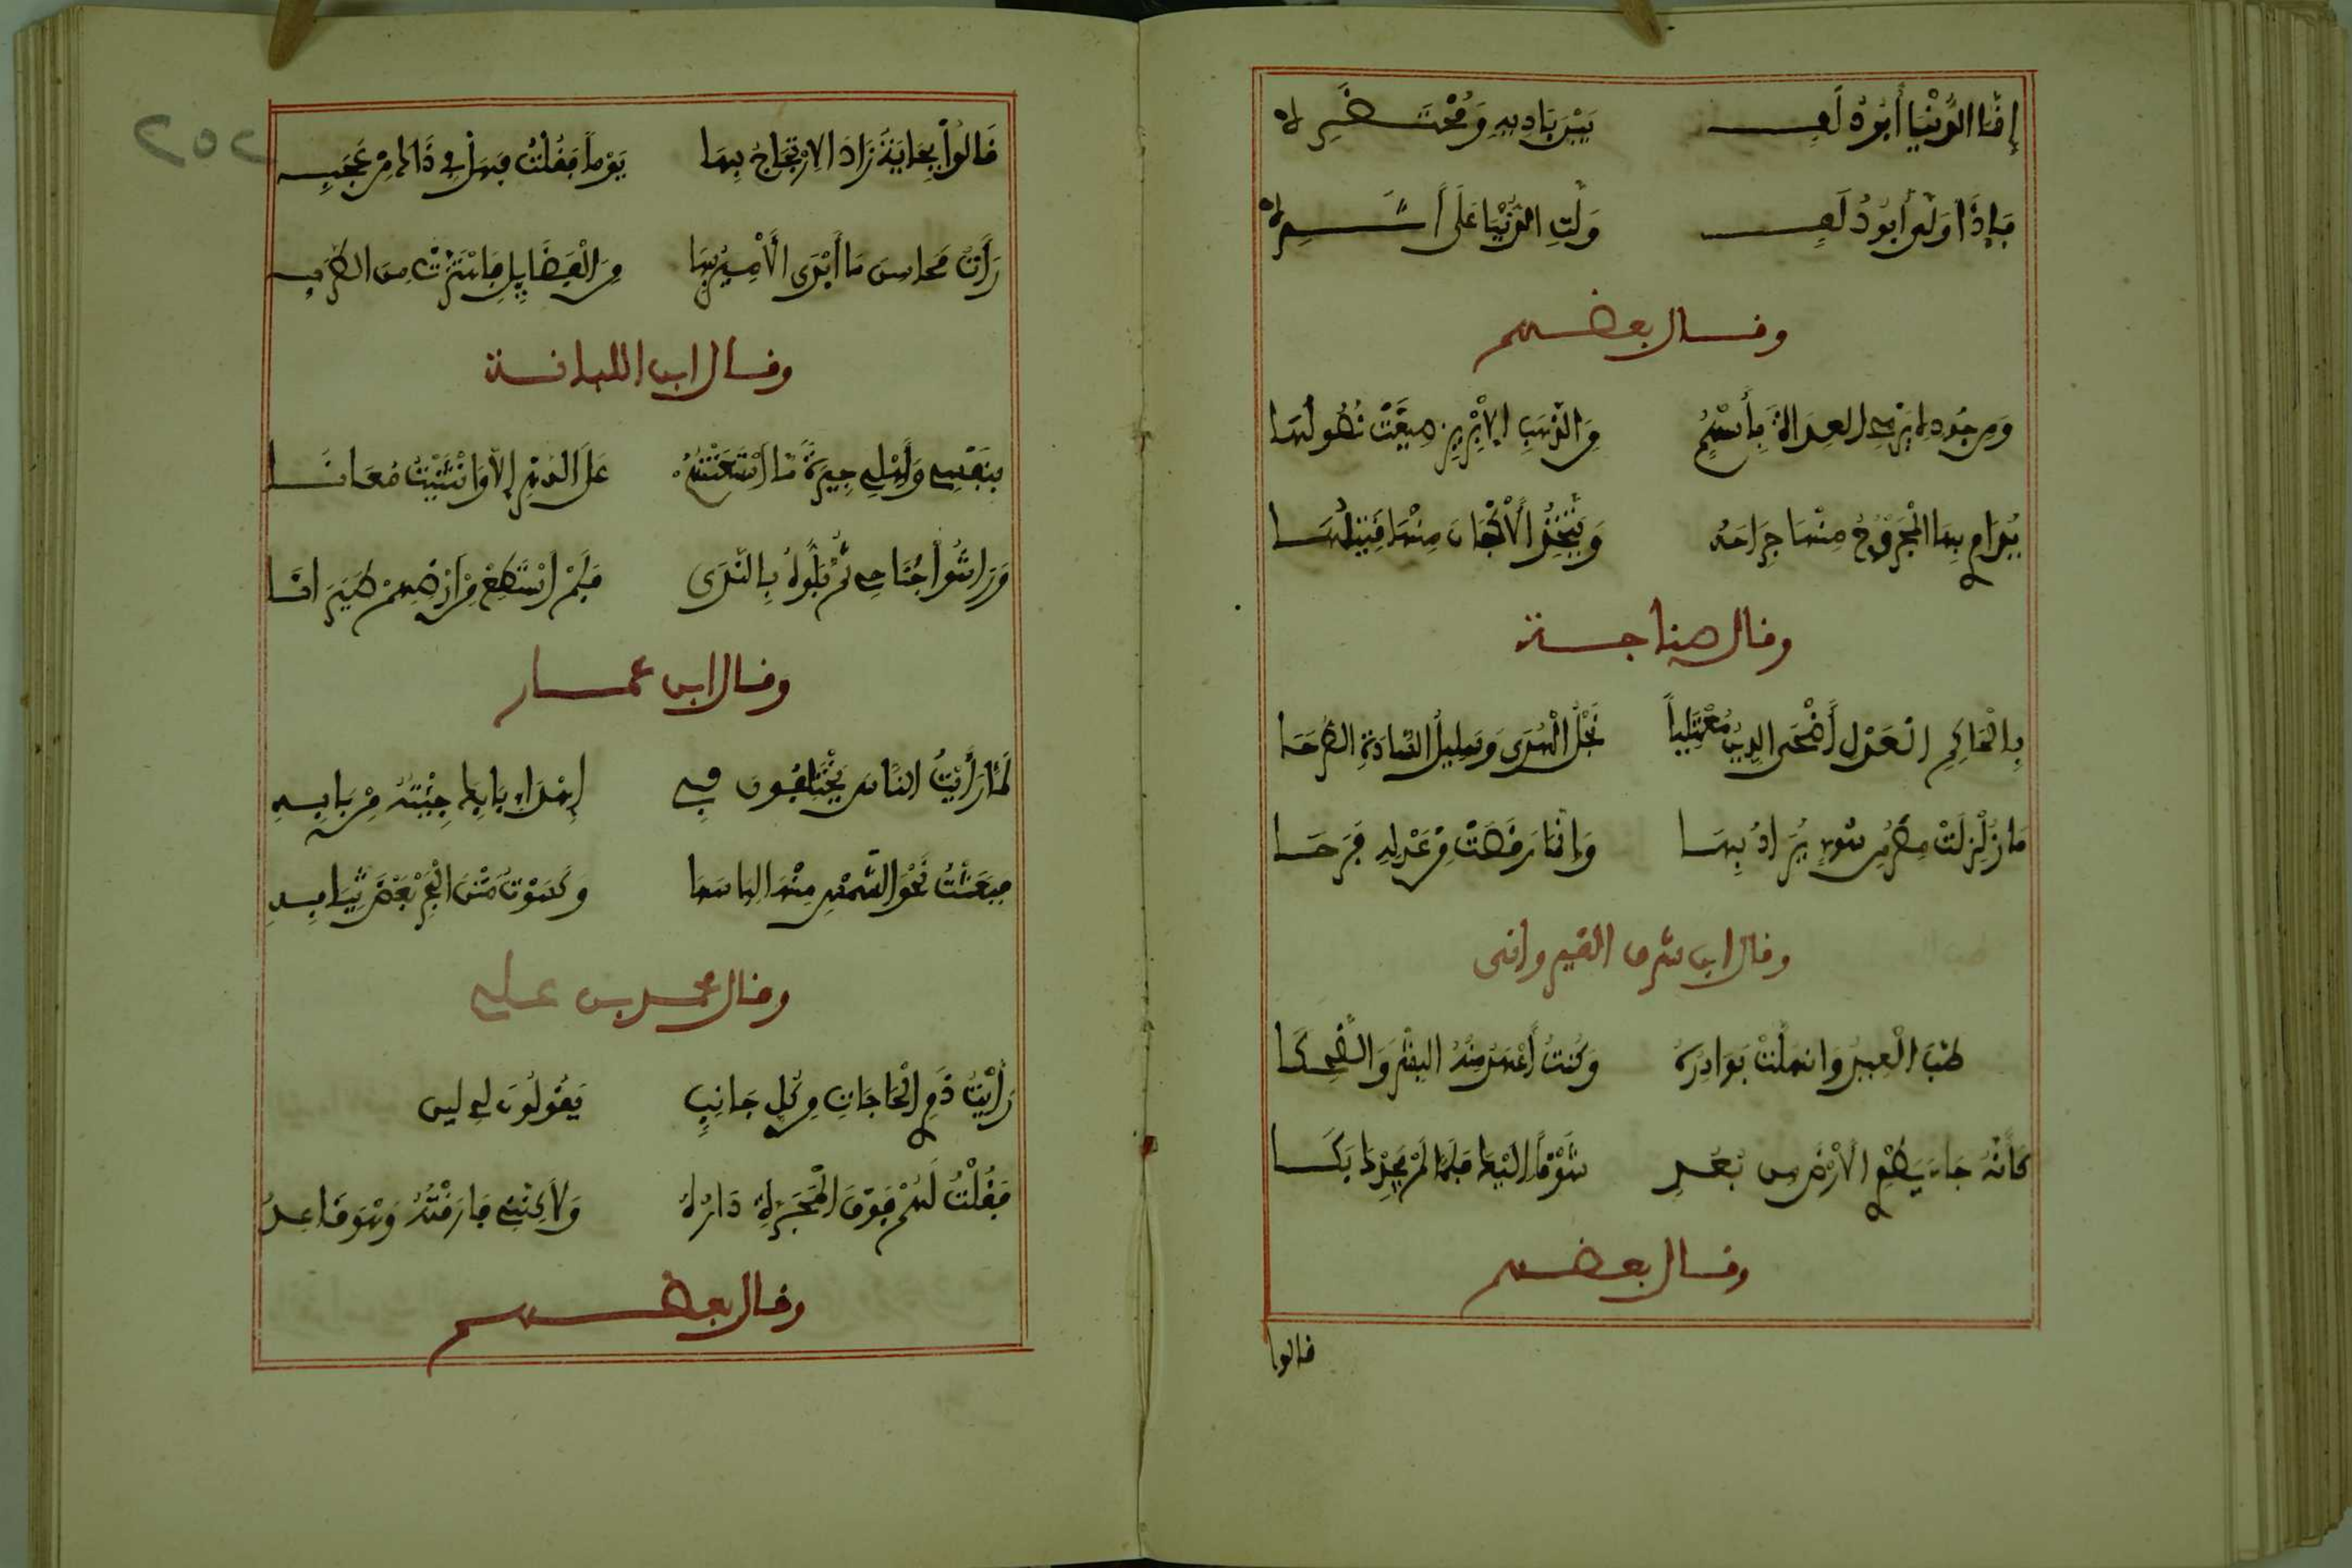 إِنَّمَا الدُّنْيَا أَبُو دُلَفٍ بَيْنَ بَادِيهِ وَمُحْتَضَرِهْ
فَإِذَا وَلَّى أَبُو دُلَفٍ وَلَّتِ الدُّنْيَا عَلَى أَثَرِهْ
وقال بعضهم
وَمِن جُودِهِ يَرْمِي العِدَاةَ بِأَسْهُمٍ مِنَ الذَّهَبِ الإِبْرِيزِ صِيغَتْ نُصُولُهَا
يُدَاوِي بِهَا الْمَجْرُوحُ مِنْهَا جِرَاحَهُ وَيَتَّخِذُ الْأَكْفَانَ مِنْهَا قَتِيلُهَا
وقال
بِالْحَاكِمِ الْعَدْلِ أَضْحَى الدِّينُ مُعْتَلِياً نَجْلُ الْهُدَى وَسَلِيلُ السَّادَةِ الصُّلَحَا
مَا زُلْزِلَتْ مِصْرُ مِن سُوءٍ يُرَادُ بِهَا وَإِنَّمَا رَقَصَتْ مِنْ عَدْلِهِ فَرَحَا
وقال ابن شرف القيرواني
وَكُنتُ أَعْهَدُ مِنْهُ البِشْرَ وَالضَّحِكَا
كَأَنَّهُ جَاءَ يَطْوِي الْأَرْضَ مِن بُعُدٍ شَوْقًا إِلَيْهَا فَلَمَّا لَمْ يَجِدْهَا بَكَى
وقال بعضهم
قالوا
252
قَالُوا بِجَايَةُ زَادَ الِارْتِجَاجُ بِهَا يَوْماً فَقُلْتُ فَهَلْ فِي ذَاكَ مِنْ عَجَبِ
رَأَتْ مَحَاسِنَ مَا أَبْدَى الْأَمِيرُ بِهَا مِنَ الْفَضَايِلِ فَاهْتَزَّتْ مِنَ الطَّرَبِ
وقال ابن اللبانة
بِنَفْسِي وَأَهْلِي جِيرَةٌ مَا اسْتَعَنْتُهُمْ عَلَى الدَّهْرِ إِلَّا وَانْثَنَيْتُ مُعَانَا
وَرَاشُوا جَنَاحِي ثُمَّ بَلُّوهُ بِالنَّدَى فَلَمْ أَسْتَطِعْ مِنْ أَرْضِهِمْ طَيَرَانَا
وقال ابن عمار
لَمَّا رَأَيْتُ النَّاسَ يَخْتَلِفُونَ فِي إِهْدَاءِ بَابِكَ جِئْتُهُ مِنْ بَابِهِ
فَبَعَثْتُ نَحْوَ الشَّمْسِ مِنْهَا إِيَاسَهَا وَكَسَوْتُ مَتْنَ الْبَحْرِ بَعْضَ ثِيَابِهِ
وقال محمد بن علي
رَأَيْتُ ذَوِي الْحَاجَاتِ مِن كُلِّ جَانِبٍ يَقُولُونَ لِي أَيْنَ
فَقُلْتُ لَهُمْ فَوْقَ الْمَجَرَّةِ دَارُهُ وَلَاكِنَّنِي فَارَقْتُهُ وَهْوَ قَاعِدُ
وقال بعضهم